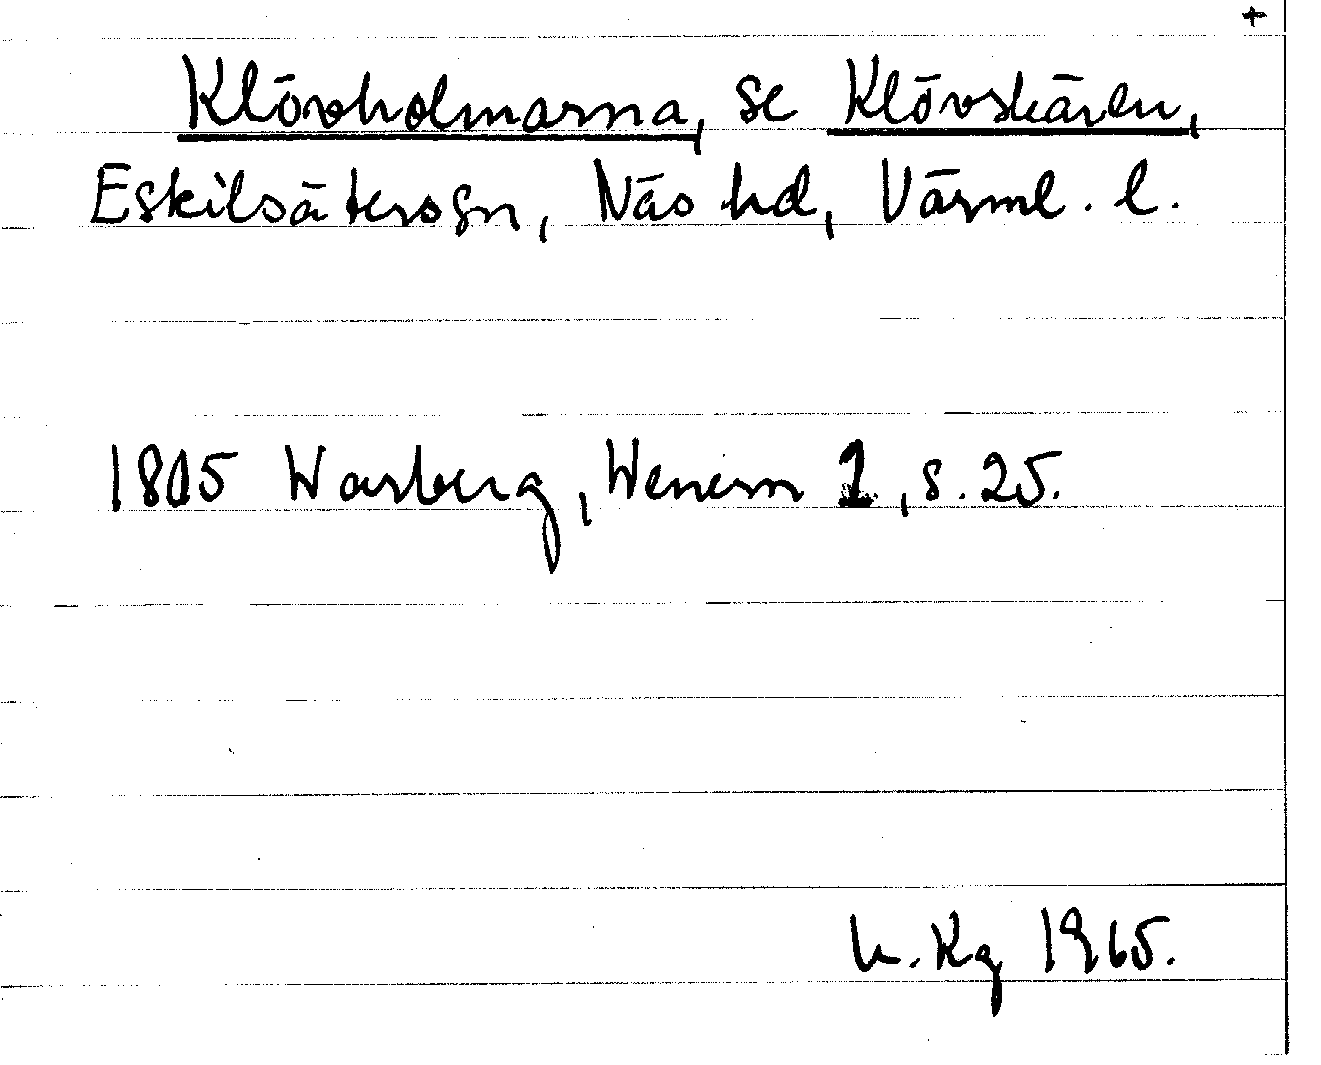 +
Klövholmarna, se Klövskären,
Eskilsäters sn, Näs hd, Värml. l.
1805 Warberg, Wenern 1, s. 25.
Kg 1965.